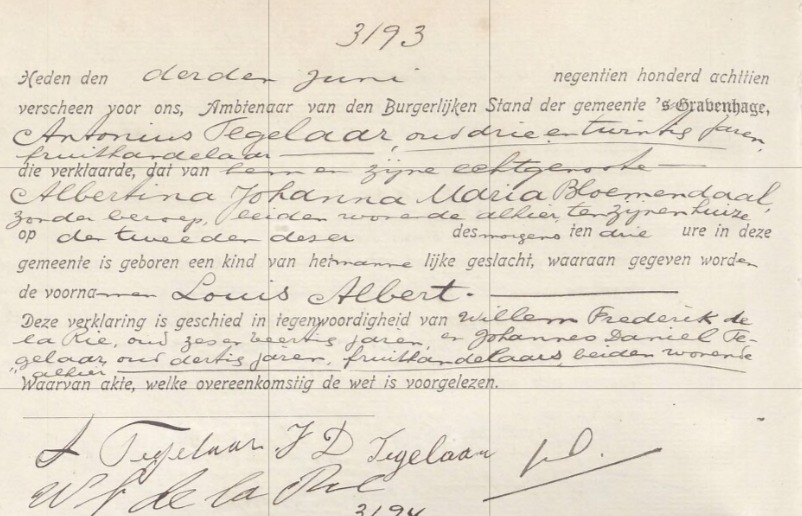 3193
Heden den derden Juni negentien honderd achttien
verscheen voor ons, Ambtenaar van den Burgerlijken Stand der gemeente 's Gravenhage,
Antonius Tegelaar, oud drie en twintig jaren,
fruithandelaar
die verklaarde, dat van hem en zijne echtgenoote
Albertina Johanna Maria Bloemendaal,
zonder beroep, beiden wonende alhier, ten zijnen huize
op den tweeden dezer des morgens ten drie ure in deze
gemeente is geboren een kind van het mannelijke geslacht, waaraan gegeven worden
de voornamen Louis Albert.
Deze verklaring is geschied in tegenwoordigheid van Willem Frederik de
la Rie, oud zes en veertig jaren, en Johannes Daniel Te-
gelaar, oud dertig jaren, fruithandelaars, beiden wonende
alhier
Waarvan akte, welke overeenkomstig de wet is voorgelezen.
A Tegelaar J D Tegelaar
W f de la Rie
3194